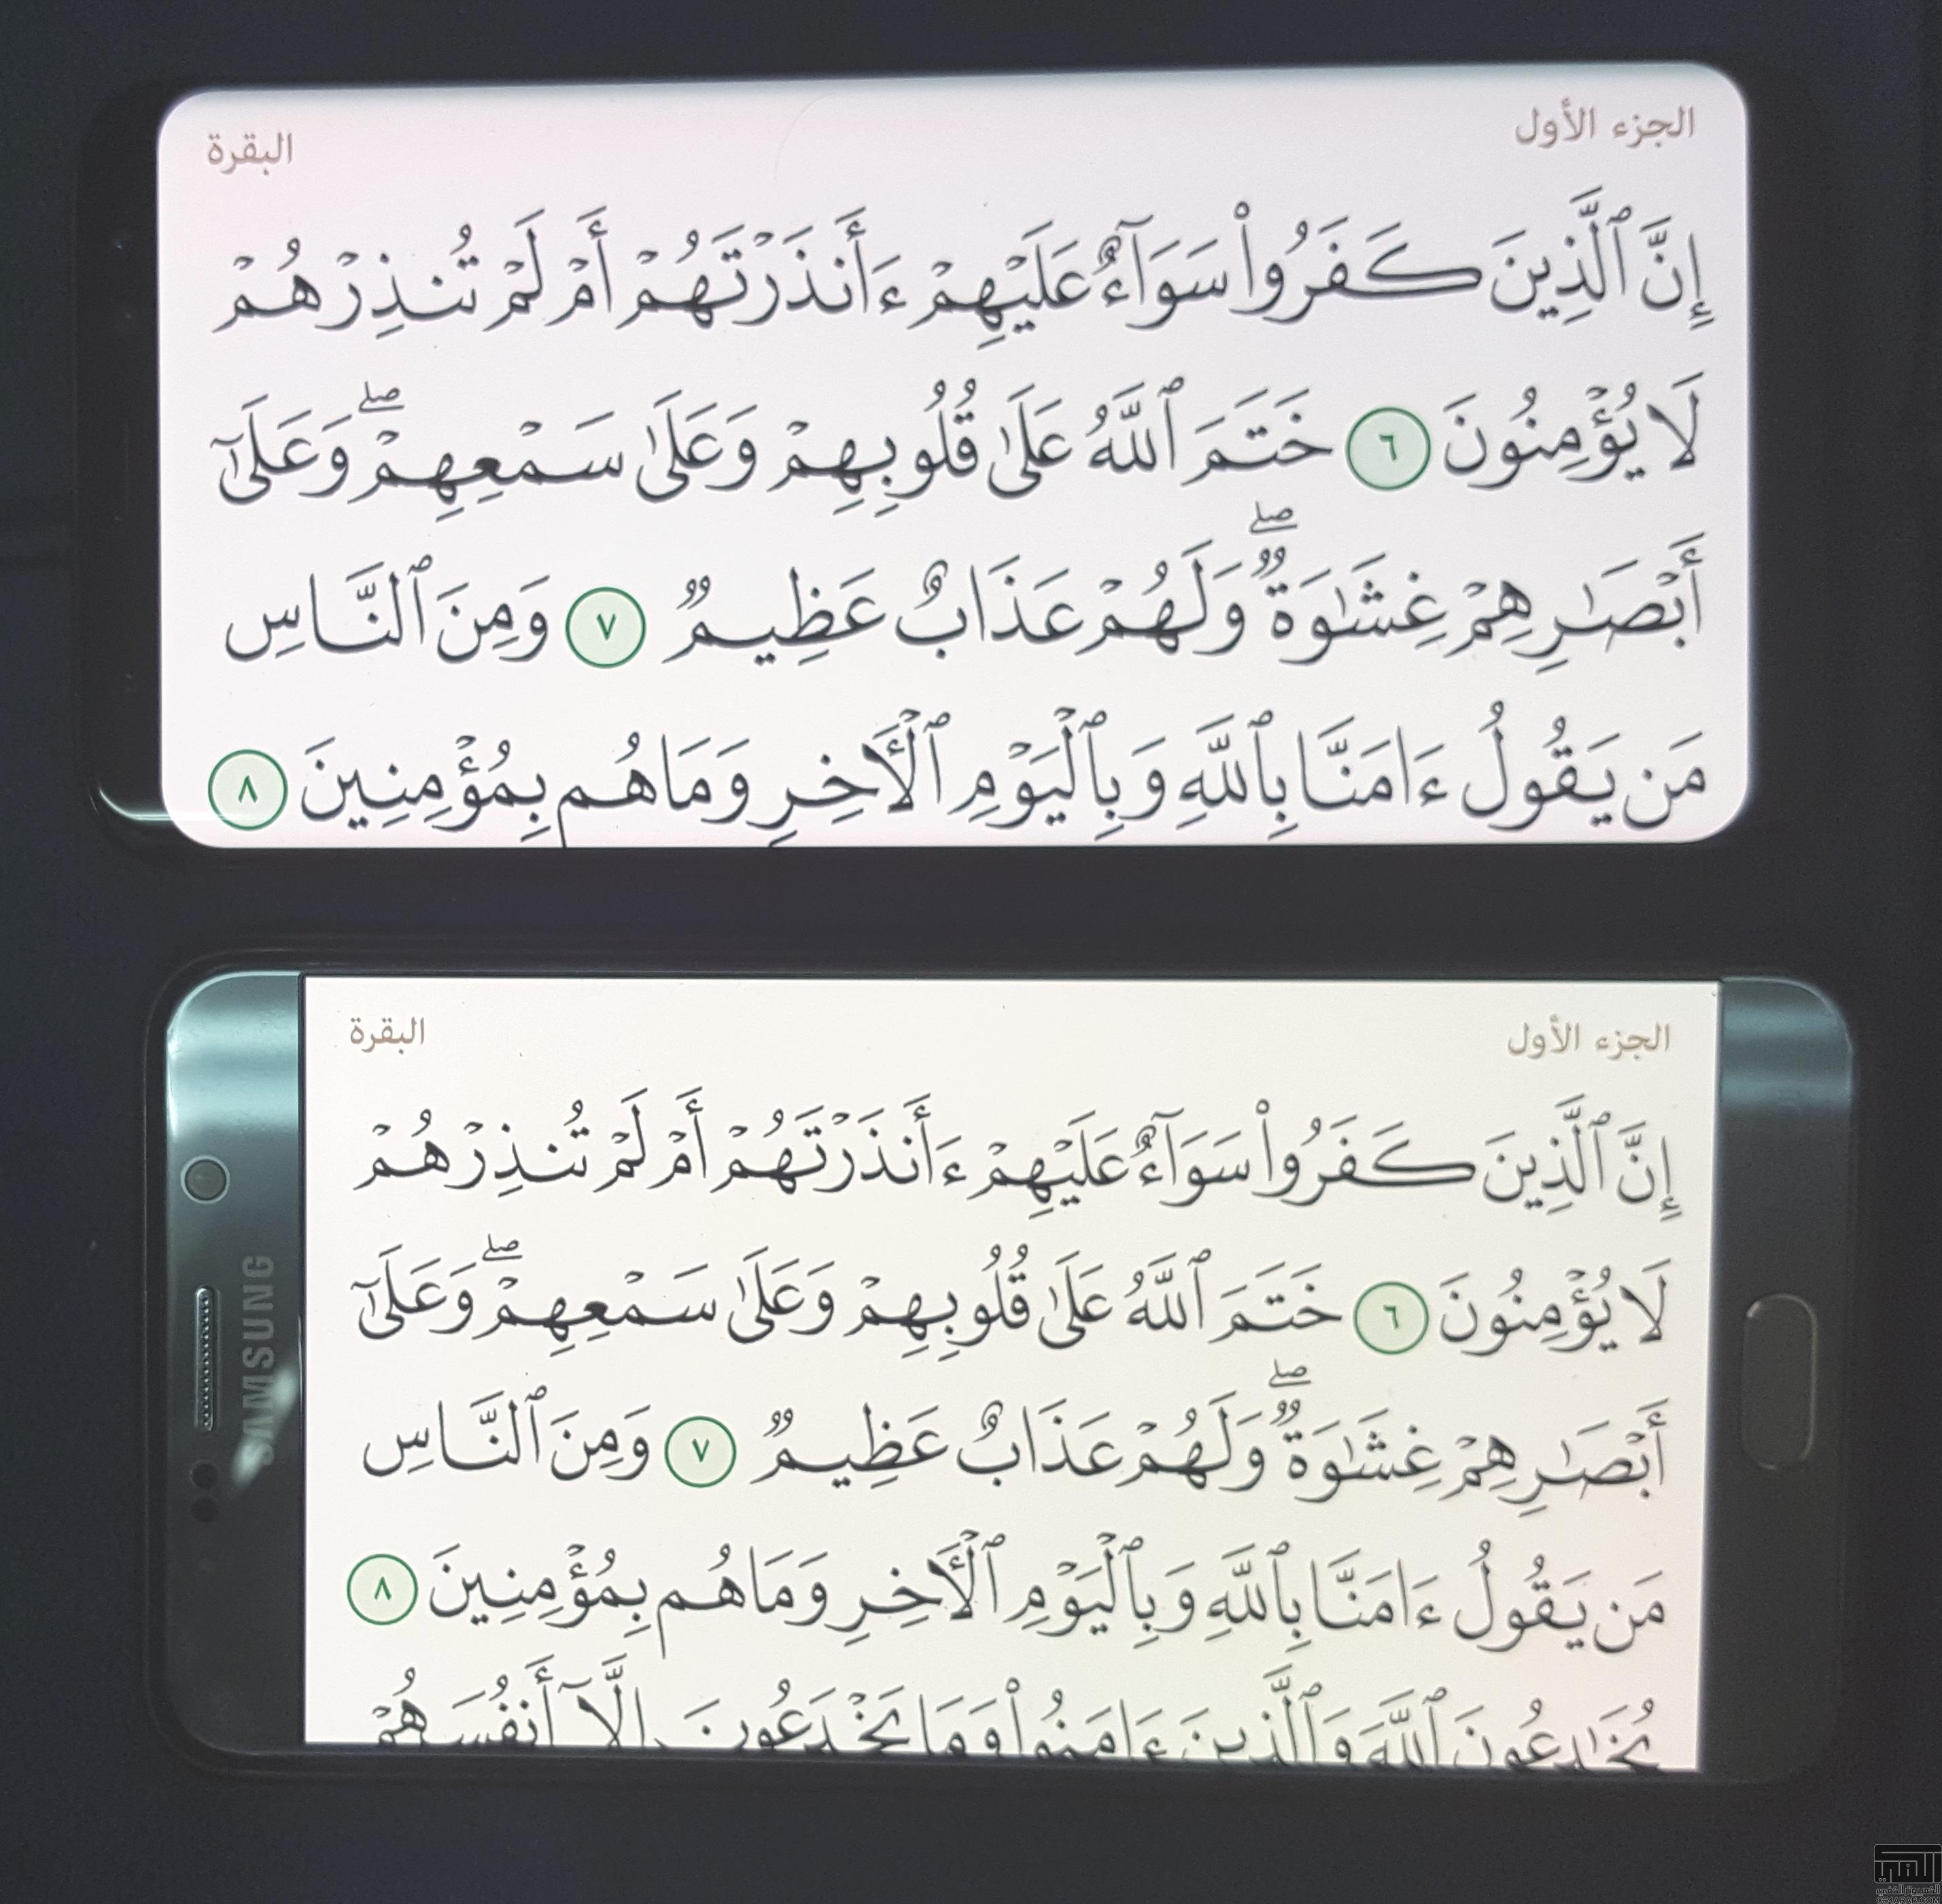 الجزء الأول
البقرة
إِنَّ ٱلَّذِينَ كَفَرُوا۟ سَوَآءٌ عَلَيْهِمْ ءَأَنذَرْتَهُمْ أَمْ لَمْ تُنذِرْهُمْ
لَا يُؤْمِنُونَ ٦ خَتَمَ ٱللَّهُ عَلَىٰ قُلُوبِهِمْ وَعَلَىٰ سَمْعِهِمْ ۖ وَعَلَىٰٓ
أَبْصَٰرِهِمْ غِشَٰوَةٌ ۖ وَلَهُمْ عَذَابٌ عَظِيمٌ ٧ وَمِنَ ٱلنَّاسِ
مَن يَقُولُ ءَامَنَّا بِٱللَّهِ وَبِٱلْيَوْمِ ٱلْأَخِرِ وَمَا هُم بِمُؤْمِنِينَ ٨
SAMSUNG
الجزء الأول
البقرة
إِنَّ ٱلَّذِينَ كَفَرُوا۟ سَوَآءٌ عَلَيْهِمْ ءَأَنذَرْتَهُمْ أَمْ لَمْ تُنذِرْهُمْ
لَا يُؤْمِنُونَ ٦ خَتَمَ ٱللَّهُ عَلَىٰ قُلُوبِهِمْ وَعَلَىٰ سَمْعِهِمْ ۖ وَعَلَىٰٓ
أَبْصَٰرِهِمْ غِشَٰوَةٌ ۖ وَلَهُمْ عَذَابٌ عَظِيمٌ ٧ وَمِنَ ٱلنَّاسِ
مَن يَقُولُ ءَامَنَّا بِٱللَّهِ وَبِٱلْيَوْمِ ٱلْأَخِرِ وَمَا هُم بِمُؤْمِنِينَ ٨
يُخَٰدِعُونَ ٱللَّهَ وَٱلَّذِينَ ءَامَنُوا۟ وَمَا يَخْدَعُونَ إِلَّآ أَنفُسَهُمْ